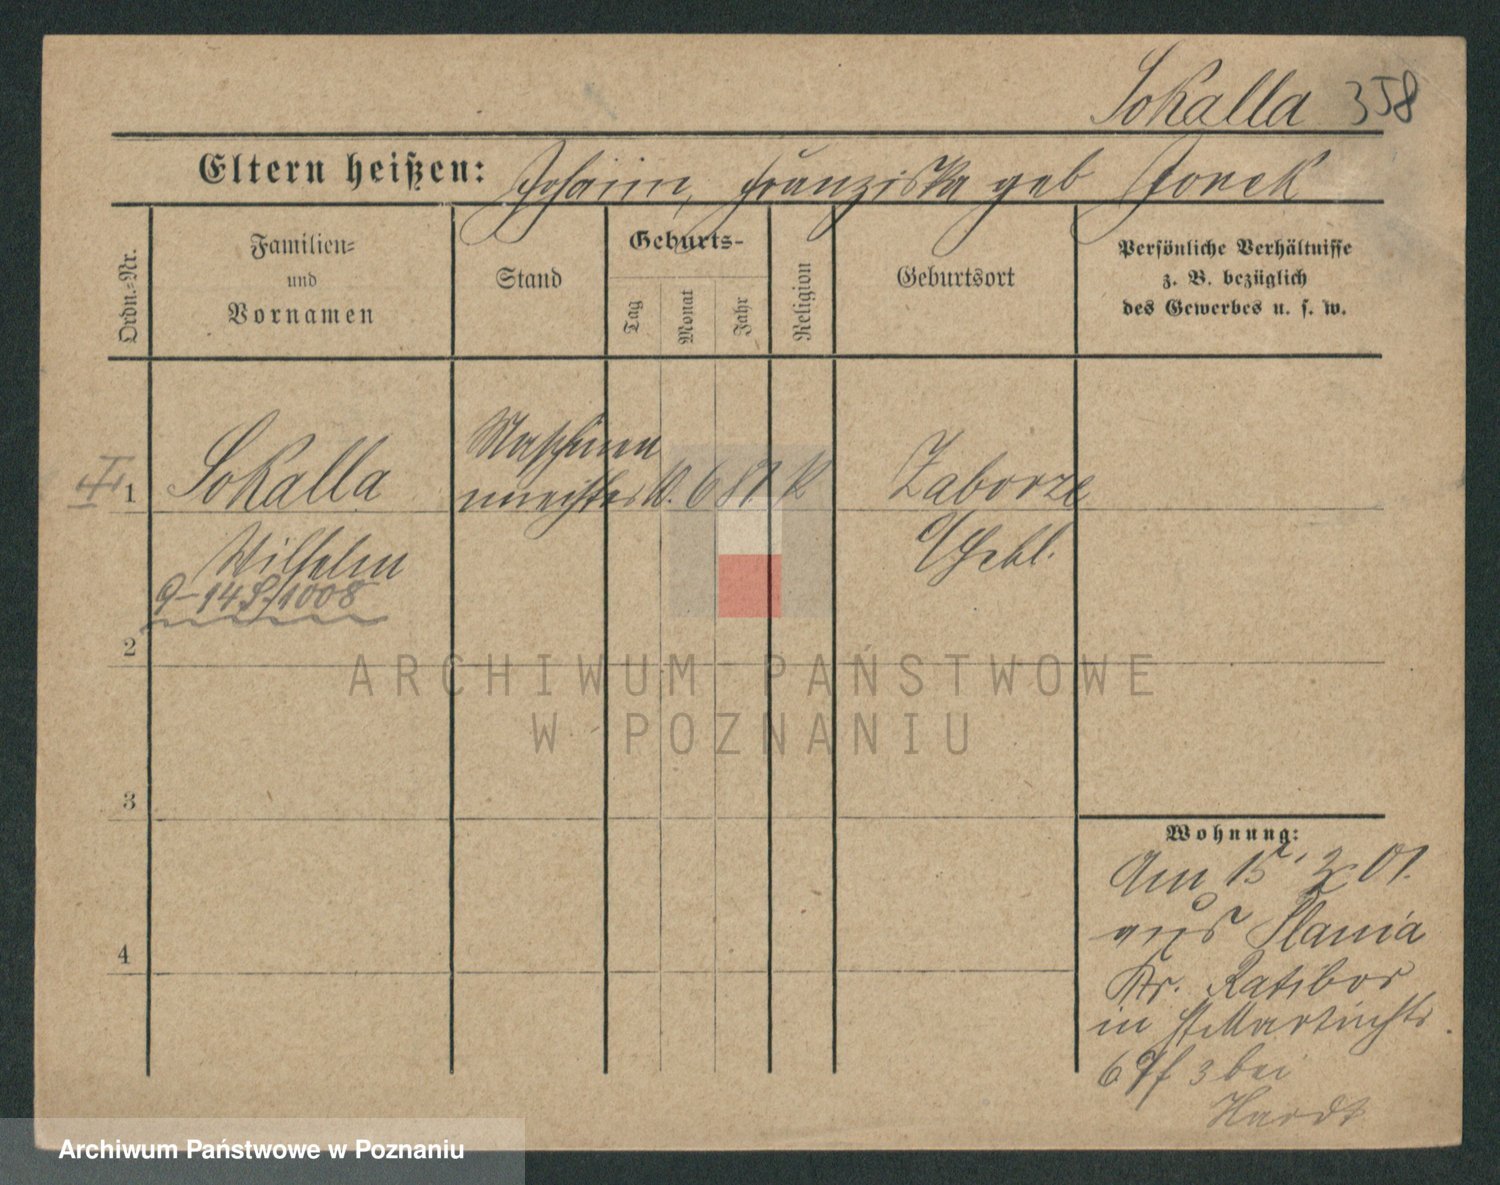 Sokalla 358
Eltern heißen: Johann, Franziska geb
Ordn.-Nr.
Familien-
und
Vornamen
Stand
Geburts-
Tag
Monat
Jahr
Religion
Geburtsort
Persönliche Verhältnisse
z. B. bezüglich
des Gewerbes u. s. w.
1
Sokalla
Maschinen
meister 10. 6 81 K
Zaborze
Wilhelm
O/Schl.
9-14 S/1008
2
ARCHIWUM PAŃSTWOWE
W POZNANIU
3
Wohnung:
Am 15. 01.
aus
Kr. Ratibor
in St Martinstr
3 bei
Hardt
4
Archiwum Państwowe w Poznaniu